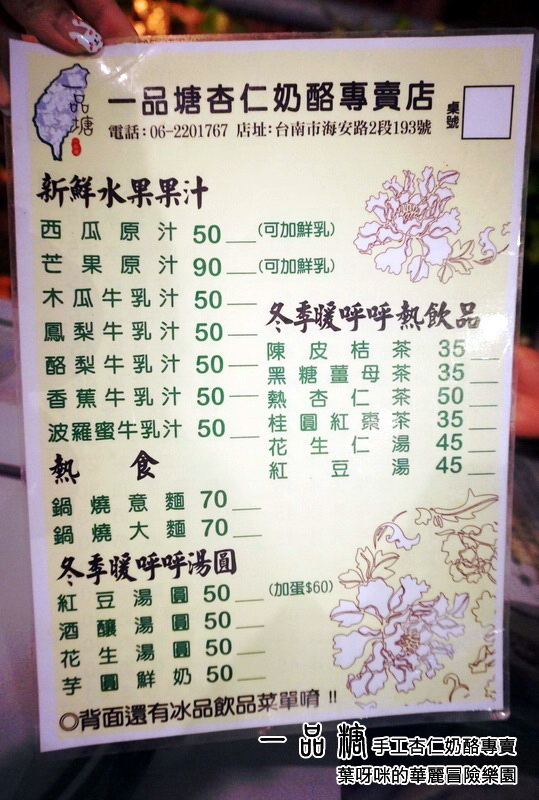 一品塘
一品塘杏仁奶酪專賣店
桌號
電話:06-2201767 店址:台南市海安路2段193號
新鮮水果果汁
西瓜原汁 50__(可加鮮乳)
芒果原汁 90__(可加鮮乳)
木瓜牛乳汁 50__
鳳梨牛乳汁 50__
酪梨牛乳汁 50__
香蕉牛乳汁 50__
波羅蜜牛乳汁 50__
熱食
鍋燒意麵 70__
鍋燒大麵 70__
冬季暖呼呼湯圓
紅豆湯圓 50__(加蛋$60)
酒釀湯圓 50__
花生湯圓 50__
芋圓鮮奶 50__
冬季暖呼呼熱飲品
陳皮桔茶 35__
黑糖薑母茶 35__
熱杏仁茶 50__
桂圓紅棗茶 35__
花生仁湯 45__
紅豆湯 45__
◎背面還有冰品飲品菜單唷!!
一品糖 手工杏仁奶酪專賣
葉呀咪的華麗冒險樂園